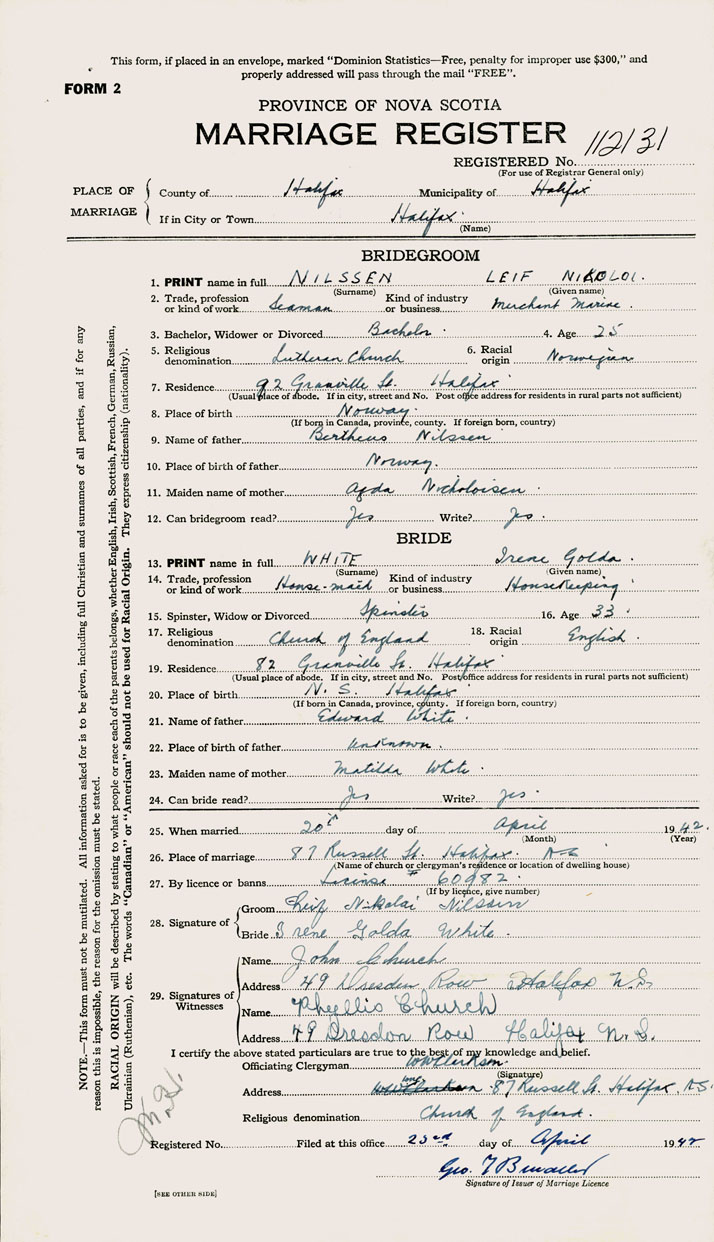 This form, if placed in an envelope, marked "Dominion Statistics—Free, penalty for improper use $300," and
properly addressed will pass through the mail "FREE".
FORM 2
PROVINCE OF NOVA SCOTIA
MARRIAGE REGISTER
REGISTERED No. 112131
(For use of Registrar General only)
PLACE OF MARRIAGE
County of Halifax Municipality of Halifax
If in City or Town Halifax
(Name)
BRIDEGROOM
1. PRINT name in full NILSSEN LEIF NIKOLOI.
(Surname) (Given name)
2. Trade, profession or kind of work Seaman Kind of industry or business Merchant Marine.
3. Bachelor, Widower or Divorced Bachelor. 4. Age 25
5. Religious denomination Lutheran Church 6. Racial origin Norwegian
7. Residence 92 Granville St. Halifax
(Usual place of abode. If in city, street and No. Post office address for residents in rural parts not sufficient)
8. Place of birth Norway.
(If born in Canada, province, county. If foreign born, country)
9. Name of father Bertheus Nilssen
10. Place of birth of father Norway.
11. Maiden name of mother Agda Nocholoisen.
12. Can bridegroom read? Yes Write? Yes.
BRIDE
13. PRINT name in full WHITE Irene Golda.
(Surname) (Given name)
14. Trade, profession or kind of work House-maid Kind of industry or business HouseKeeping
15. Spinster, Widow or Divorced Spinster 16. Age 33.
17. Religious denomination Church of England 18. Racial origin English.
19. Residence 82 Granville St. Halifax
(Usual place of abode. If in city, street and No. Post office address for residents in rural parts not sufficient)
20. Place of birth N. S. Halifax
(If born in Canada, province, county. If foreign born, country)
21. Name of father Edward White.
22. Place of birth of father Unknown.
23. Maiden name of mother Matilda White.
24. Can bride read? Yes Write? Yes.
25. When married 20th day of April 1942.
(Month) (Year)
26. Place of marriage 87 Russell St. Halifax. N.S
(Name of church or clergyman's residence or location of dwelling house)
27. By licence or banns License # 60982.
(If by licence, give number)
28. Signature of
Groom Leif Nikolai Nilssen
Bride Irene Golda White.
29. Signatures of Witnesses
Name John Church
Address 49 Dresden Row Halifax N.S.
Name Phyllis Church
Address 49 Dresdon Row Halifax N.S.
I certify the above stated particulars are true to the best of my knowledge and belief.
Officiating Clergyman
(Signature)
Address 87 Russell St. Halifax, N.S.
Religious denomination Church of England.
Registered No. Filed at this office 23rd day of April 1942
Geo.
Signature of Issuer of Marriage Licence
[SEE OTHER SIDE]
NOTE.—This form must not be mutilated. All information asked for is to be given, including full Christian and surnames of all parties, and if for any
reason this is impossible, the reason for the omission must be stated.
RACIAL ORIGIN will be described by stating to what people or race each of the parents belongs, whether English, Irish, Scottish, French, German, Russian,
Ukrainian (Ruthenian), etc. The words "Canadian" or "American" should not be used for Racial Origin. They express citizenship (nationality).